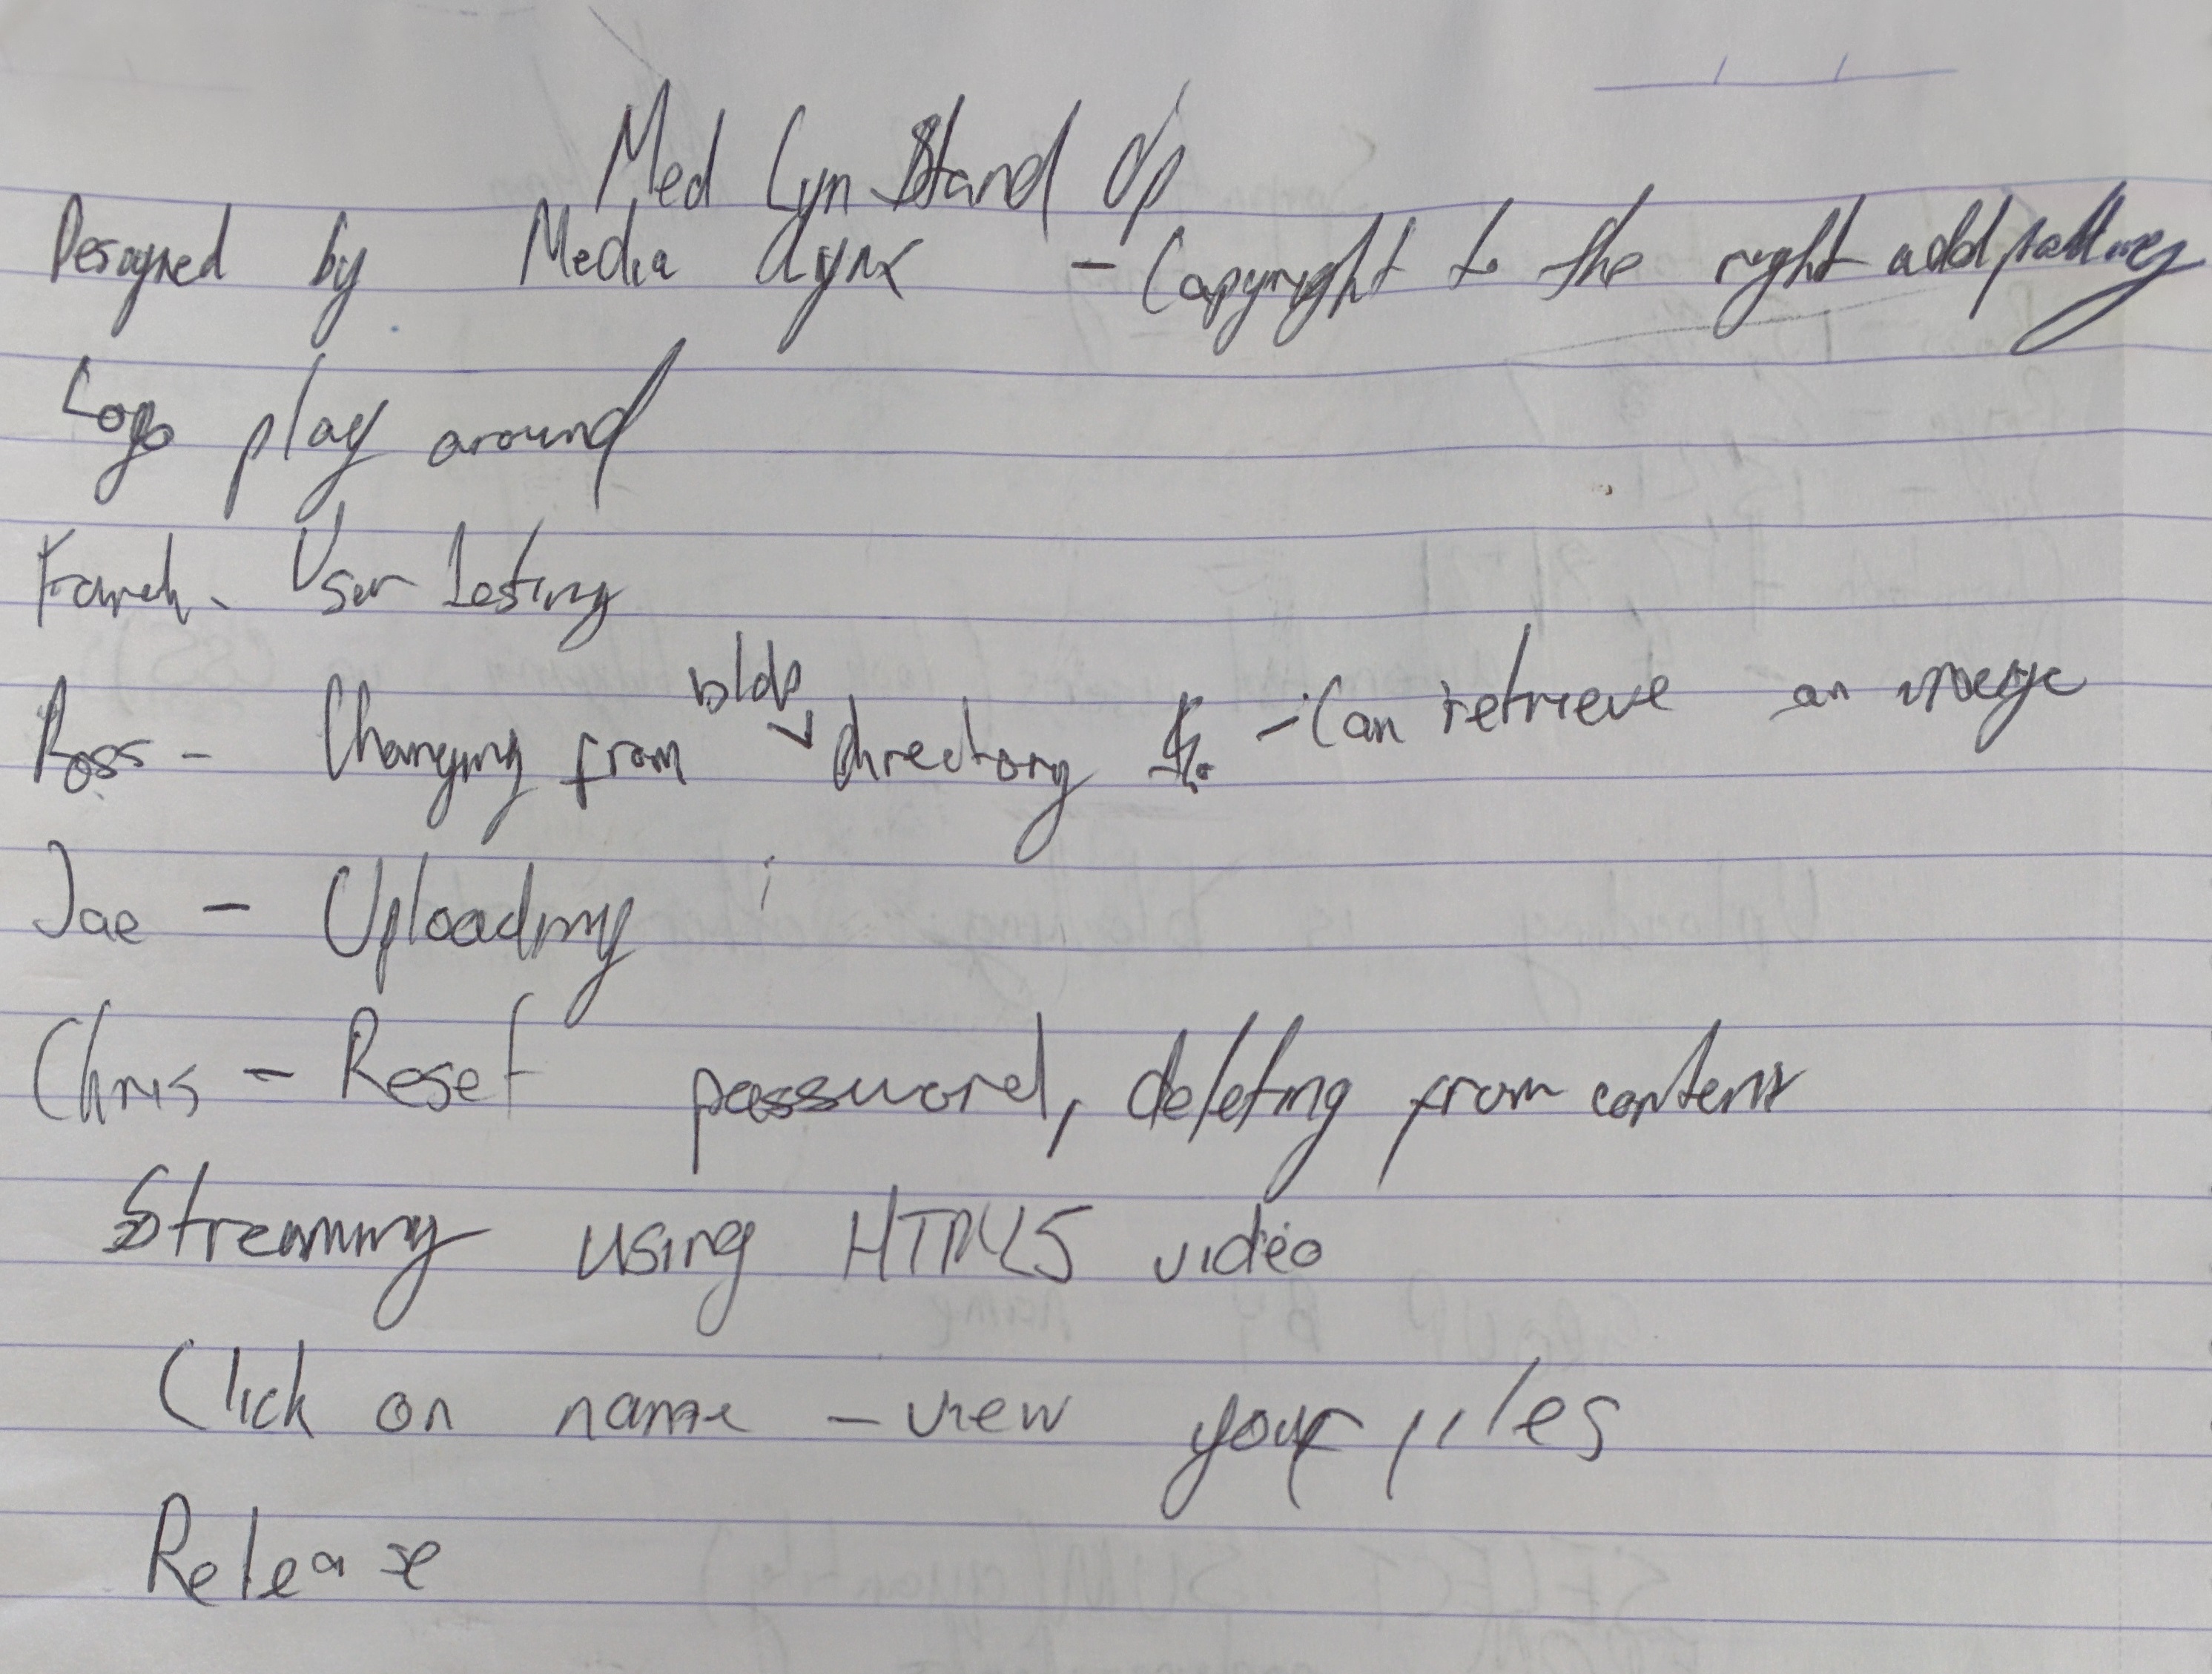 Med Lyn Stand Up
Designed by Media Lynx - Copyright to the right add padding
Logo play around
- User testing
Ross - Changing from blob directory to - Can retrieve an image
Jae - Uploading
Chris - Reset password, deleting from content
Streaming using HTML5 video
Click on name - view your files
Release